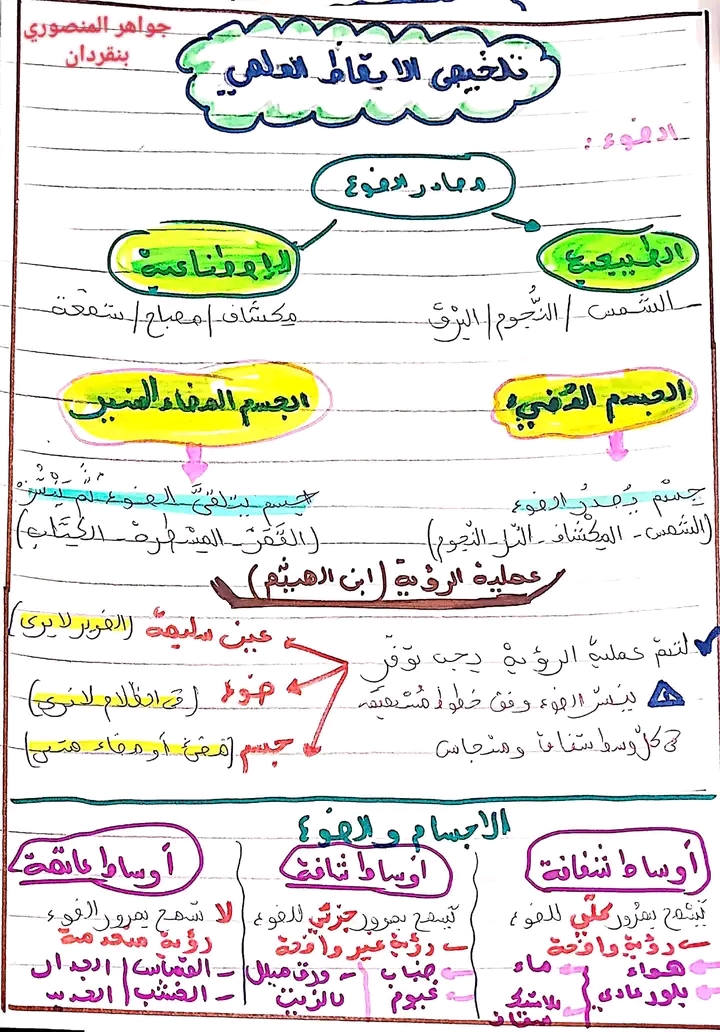 جواهر المنصوري
بنقردان
تلخيص الايقاظ العلمي
الضوء :
مصادر الضوء
الطبيعية
الإصطناعية
الشمس / النُّجوم / البرق
مكشاف / مصباح / شمعة
الجسم المُضيء
الجسم المضاء المنير
جسْم يُصدرُ الضوء
جسم يتلقىَّ الضوء ثُمَّ يَنْشُرُ
(الشمس - المِكْشاف - النّجوم)
(القَمَرَ - المِسْطرة - الكِتَاب)
عملية الرؤية (ابن الهيثم)
لتتم عملية الرؤية يجب توفّر
عين سليمة (الضرير لا يرى)
ضوء (في الظلام لا نرى)
جسم (مضيء أو مضاء
ينتشر الضوء وفق خطوط مُسْتقيمة
في كلّ وسط شفاف ومتجانس
الأجسام والضوء
أوساط شفافة
تسمح بمرور كلّي للضوء
رؤية واضحة
هواء
ماء
بلور عادي
بلاستيك شفاف
أوساط شافة
تسمح بمرور جزئي للضوء
رؤية غير واضحة
ضباب
ورق مبلل
غيوم
بالزيت
أوساط عاتمة
لا تسمح بمرور الضوء
رؤية منعدمة
- القماش
الجدار
- الخشب
الحديد